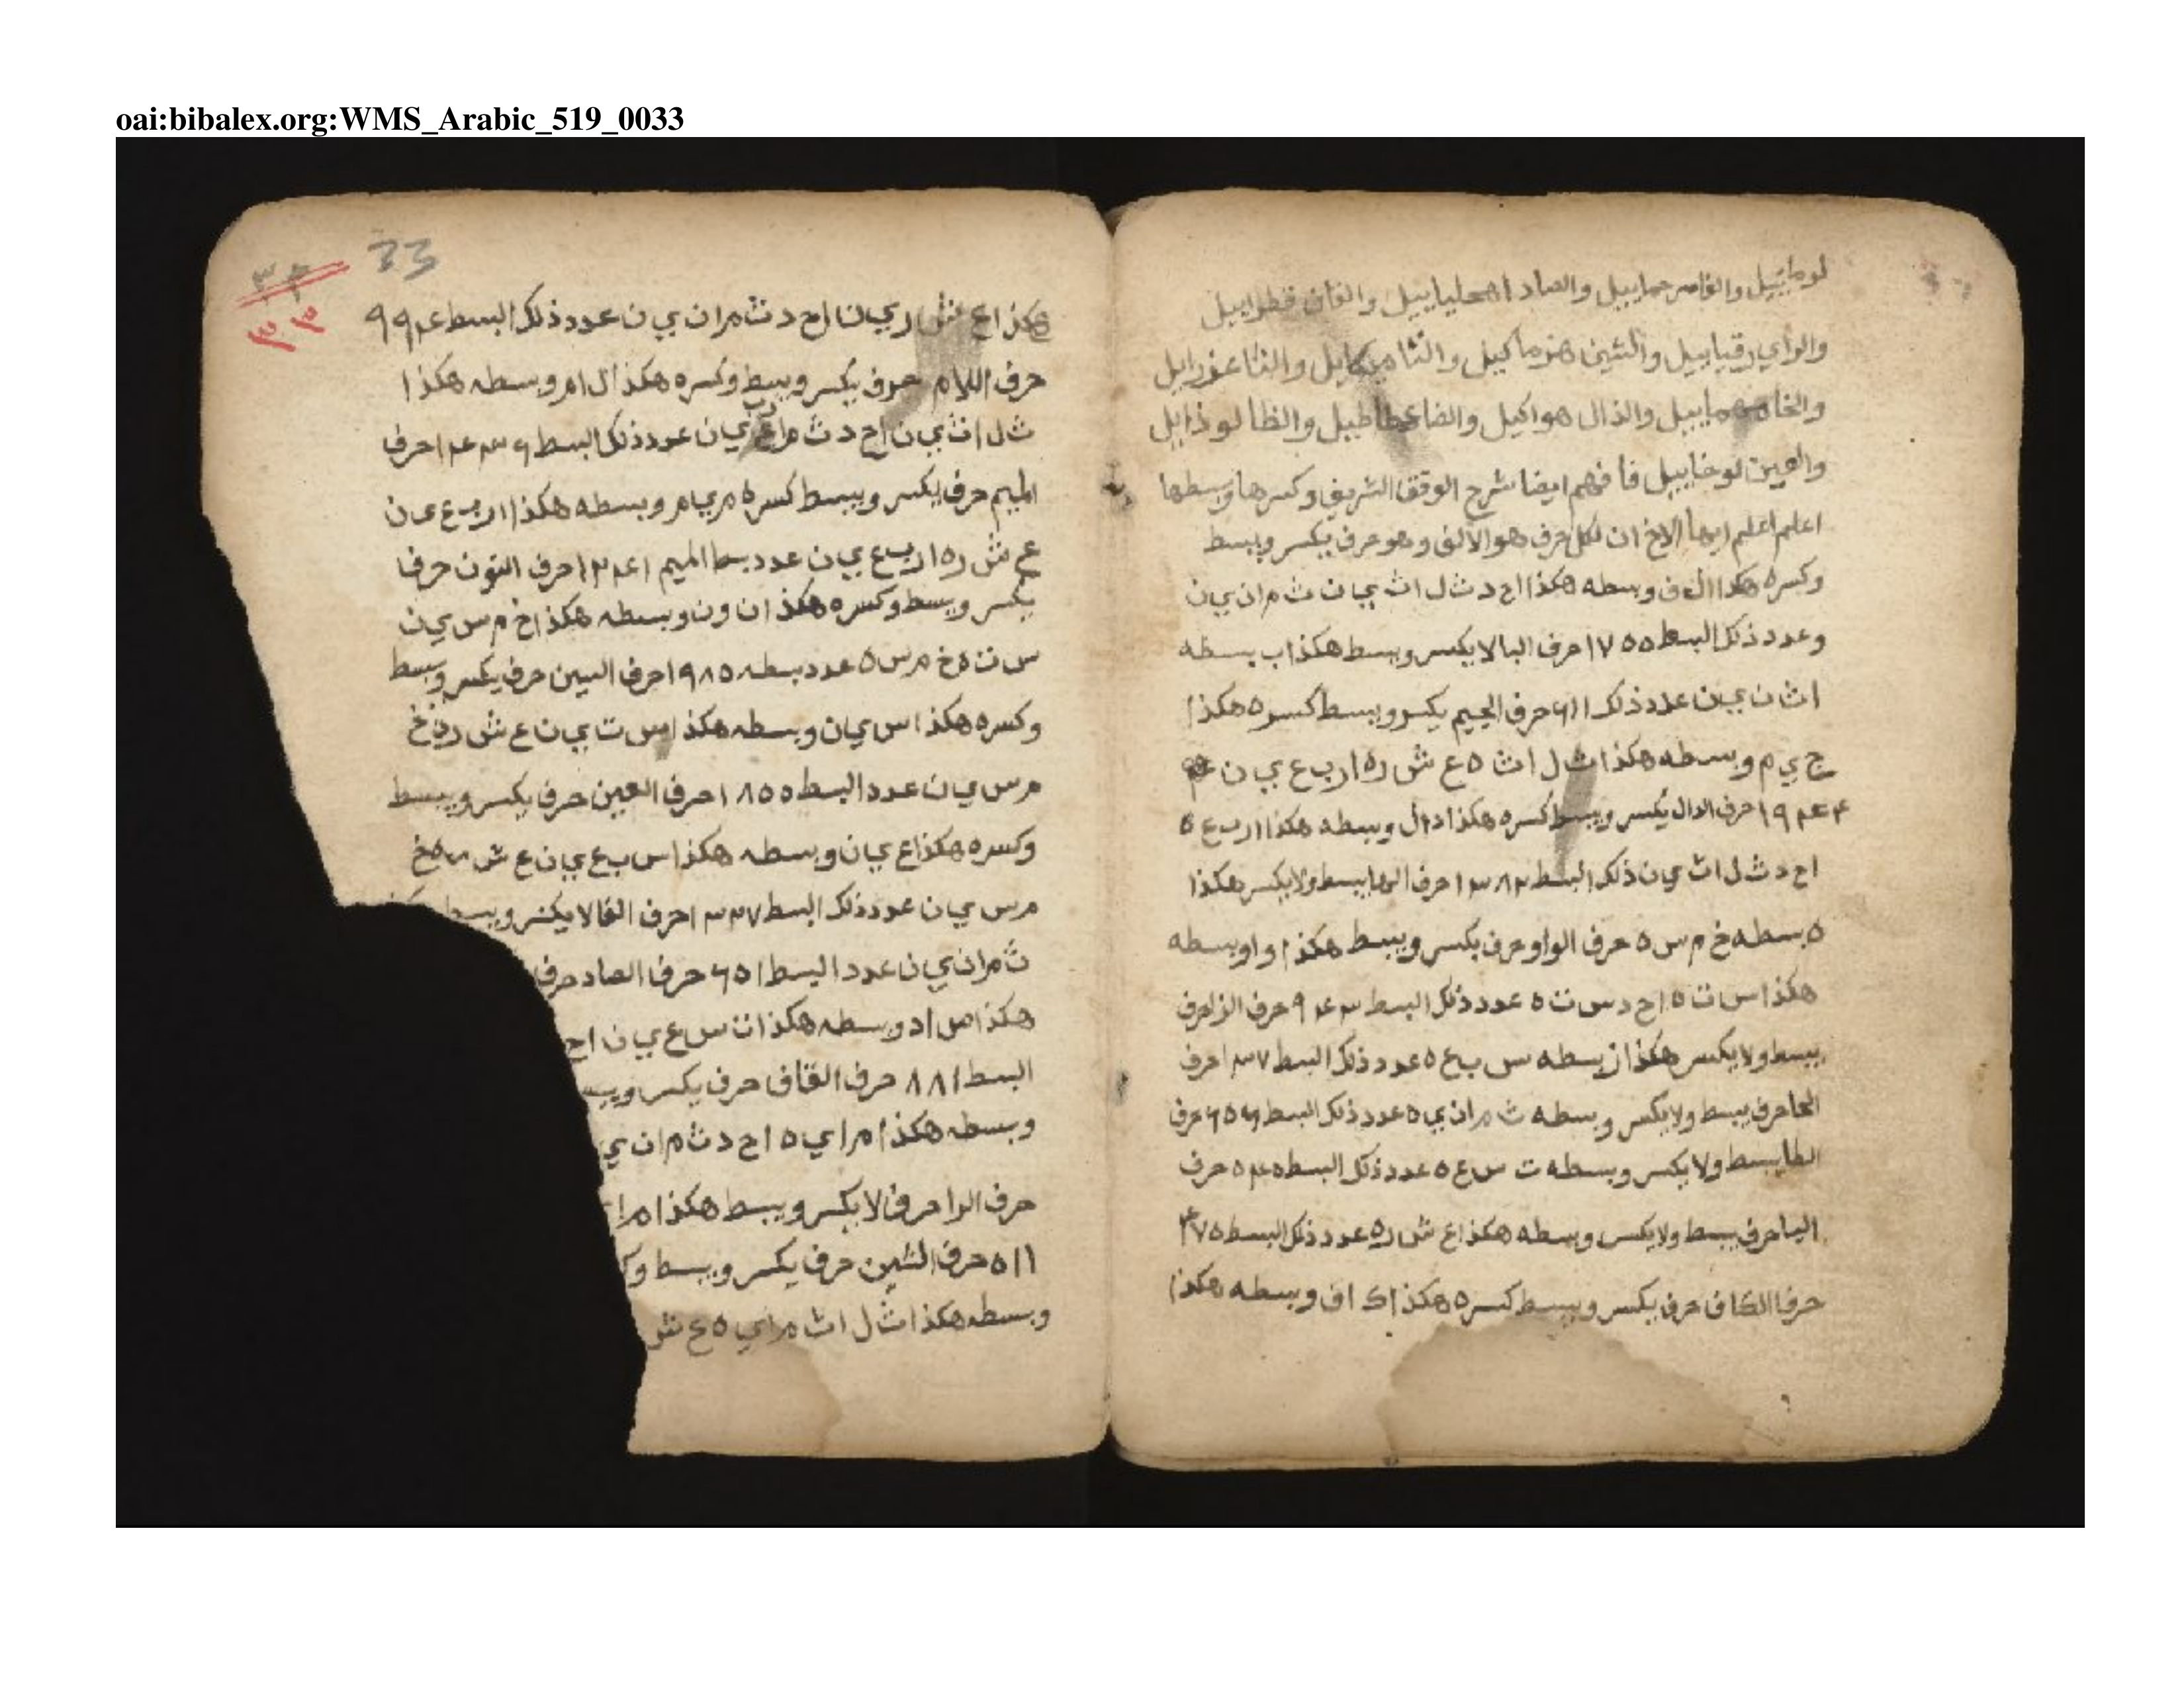 oai:bibalex.org:WMS_Arabic_519_0033
لوماييل والفا سرحماييل والصاد اهحلياييل والقاف قطراييل
والراي رقياييل والشين هزماكيل والتا ميكايل والثا عزرايل
والخا مهماييل والذال هواكيل والضا عطاطيل والظا لوذايل
والعين لوخاييل فا فهم ايضا شرح الوفق الشريف وكسرها وبسطها
اعلم اعلم ايها الاخ ان لكل حرف هو الالف وهو حرف يكسر ويبسط
وكسره هكذا ال ف وبسطه هكذا اح د ث ل ا ث ي ا ن ث م ا ن ي ن
وعدد ذلك البسط ١٧٥٥ حرف البا لا يكسر ويبسط هكذا ب بسطه
ا ث ن ي ن عدد ذلك ٦١١ حرف الجيم يكسر ويبسط كسره هكذا
ج ي م وبسطه هكذا ث ل ا ث ه ع ش ر ه ا ر ب ع ي ن
١٩٤٤ حرف الدال يكسر ويبسط كسره هكذا د ا ل وبسطه هكذا ا ر ب ع ه
ا ح د ث ل ا ث ي ن ذلك البسط ١٣٨٢ حرف الها يبسط ولا يكسر هكذا
ه بسطه خ م س ه حرف الواو حرف يكسر ويبسط هكذا و ا و بسطه
هكذا س ت ه ا ح د س ت ه عدد ذلك البسط ٩٤٣ حرف الزا حرف
يبسط ولا يكسر هكذا ز بسطه س ب ع ه عدد ذلك البسط ١٣٧ حرف
الحا حرف يبسط ولا يكسر وبسطه ث م ا ن ي ه عدد ذلك البسط ٦٥٦ حرف
الطا يبسط ولا يكسر وبسطه ت س ع ه عدد ذلك البسط ٥٤٥ حرف
اليا حرف يبسط ولا يكسر وبسطه هكذا ع ش ر ه عدد ذلك البسط
حرف الكاف حرف يكسر ويبسط كسره هكذا ك ا ف وبسطه هكذا
33
٣٣
هكذا ع ش ر ي ن ا ح د ث م ا ن ي ن عدد ذلك البسط
حرف اللام حرف يكسر ويبسط وكسره هكذا ل ا م وبسطه هكذا
ث ل ا ث ي ن ا ح د ي ن عدد ذلك البسط حرف
الميم حرف يكسر ويبسط كسره م ي م وبسطه هكذا ا ر ب ع ي ن
ع ش ر ه ا ر ب ع ي ن عدد بسط الميم حرف النون حرف
يكسر ويبسط وكسره هكذا ن و ن وبسطه هكذا خ م س ي ن
س ت ه خ م س ه عدد بسطه ١٩٨٥ حرف السين حرف يكسر ويبسط
وكسره هكذا س ي ن وبسطه هكذا س ت ي ن ع ش ر ه خ
م س ي ن عدد البسط ١٨٥٥ حرف العين حرف يكسر ويبسط
وكسره هكذا ع ي ن وبسطه هكذا س ب ع ي ن ع ش ر ه خ
م س ي ن عدد ذلك البسط حرف الفا لا يكسر ويبسط
ث م ا ن ي ن عدد البسط ٦٥١ حرف الصاد حرف
هكذا ص ا د وبسطه هكذا ت س ع ي ن ا ح
البسط ٨٨١ حرف القاف حرف يكسر ويبس
وبسطه هكذا م ا ي ه ا ح د ث م ا ن ي
حرف الرا حرف لا يكسر ويبسط هكذا م ا
٥١١ حرف الشين حرف يكسر ويبسط وك
وبسطه هكذا ث ل ا ث م ا ي ه ع ش